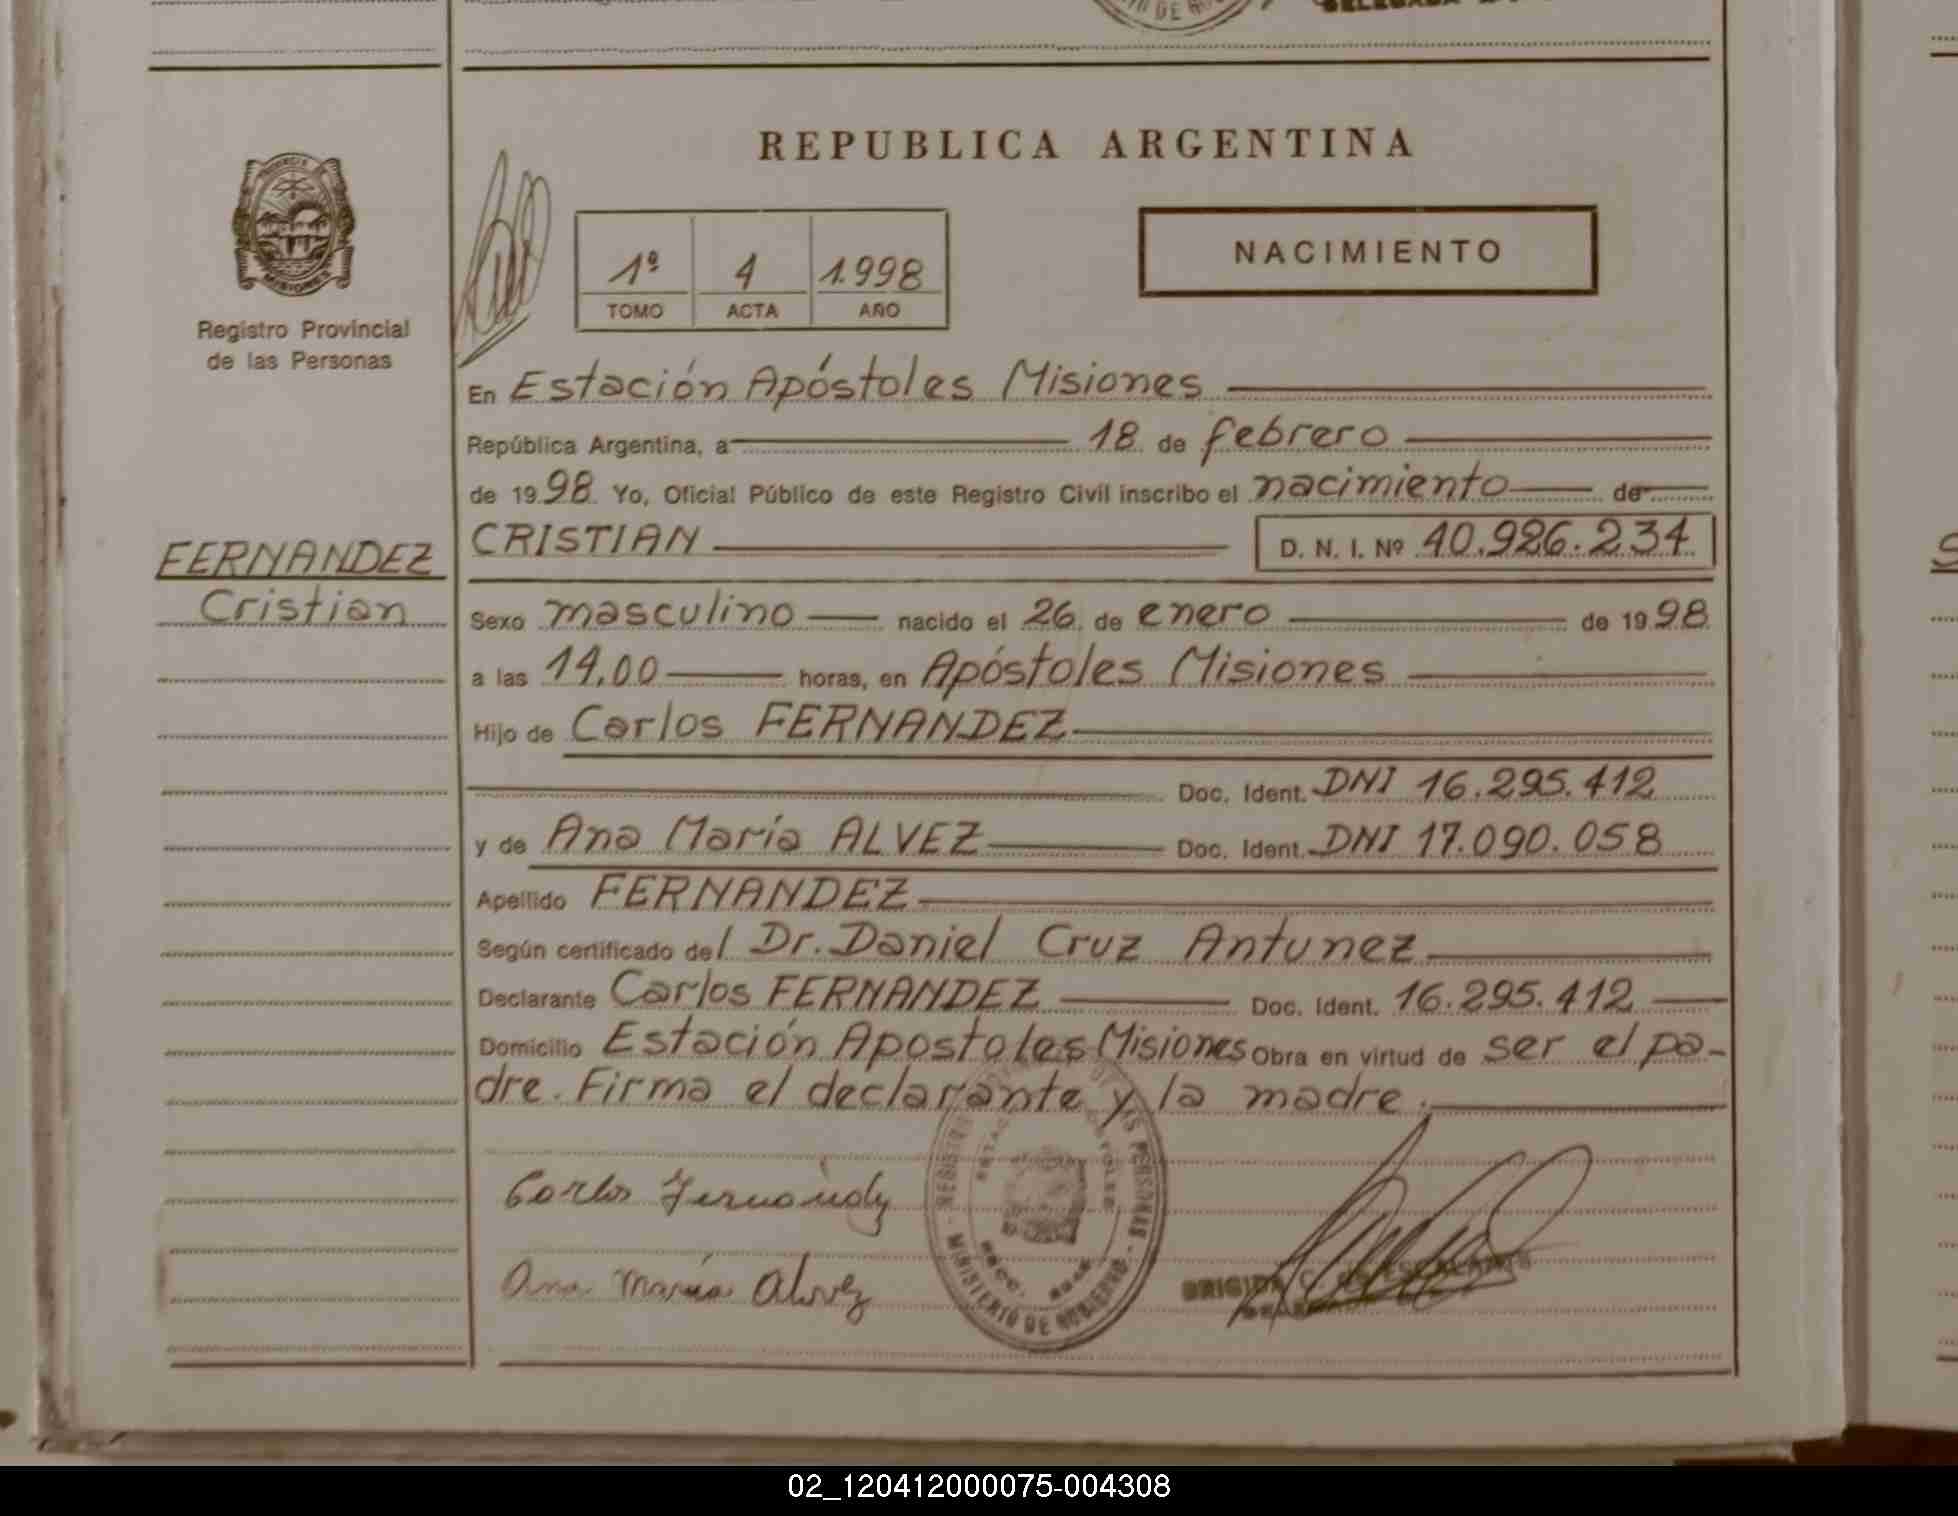 REPUBLICA ARGENTINA
MISIONES
Registro Provincial
de las Personas
1º 4 1.998
TOMO ACTA AÑO
NACIMIENTO
En Estación Apóstoles Misiones
República Argentina, a 18 de febrero
de 1998 Yo, Oficial Público de este Registro Civil inscribo el nacimiento de
FERNANDEZ
Cristian
CRISTIAN D. N. I. Nº 40.986.234
Sexo masculino nacido el 26 de enero de 1998
a las 14,00 horas, en Apóstoles Misiones
Hijo de Carlos FERNANDEZ
Doc. Ident. DNI 16.295.412
y de Ana María ALVEZ Doc. Ident. DNI 17.090.058
Apellido FERNANDEZ
Según certificado del Dr. Daniel Cruz Antunez
Declarante Carlos FERNANDEZ Doc. Ident. 16.295.412
Domicilio Estación Apostoles Misiones Obra en virtud de ser el pa-
dre. Firma el declarante y la madre.
Carlos Fernández
Ana María Alvez
MINISTERIO DE GOBIERNO
BRIGIDA C.
02_120412000075-004308